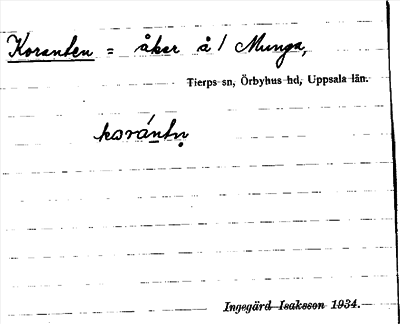 Koranten = åker å/ Munga,
Tierps sn, Örbyhus hd, Uppsala län.
korántn̥
Ingegärd Isaksson 1934.